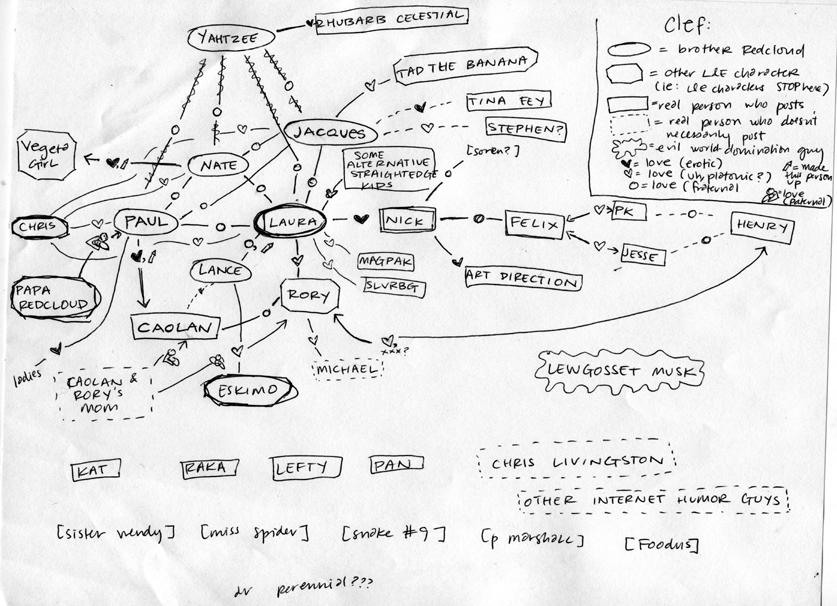 RHUBARB CELESTIAL
YAHTZEE
TAD THE BANANA
TINA FEY
JACQUES
STEPHEN?
[soren?]
Vegeta
Girl
NATE
SOME
ALTERNATIVE
STRAIGHTEDGE
KIDS
CHRIS
PAUL
LAURA
NICK
FELIX
PK
HENRY
JESSE
LANCE
MAGPAK
SLVRBG
ART DIRECTION
PAPA
REDCLOUD
RORY
CAOLAN
xxx?
ladies
CAOLAN &
RORY'S
MOM
MICHAEL
ESKIMO
LEWGOSSET MUSK
KAT
RAKA
LEFTY
PAN
CHRIS LIVINGSTON
OTHER INTERNET HUMOR GUYS
[sister wendy]
[miss spider]
[snake #9]
[p marshall]
[Foodus]
dr perennial???
Clef:
= brother Redcloud
= other L&E character
(ie: L&E characters STOP here)
= real person who posts
= real person who doesn't
necessarily post
= evil world domination guy
= love (erotic)
= love (uh platonic?)
= love (fraternal
= made
this person
up
= love
(paternal)